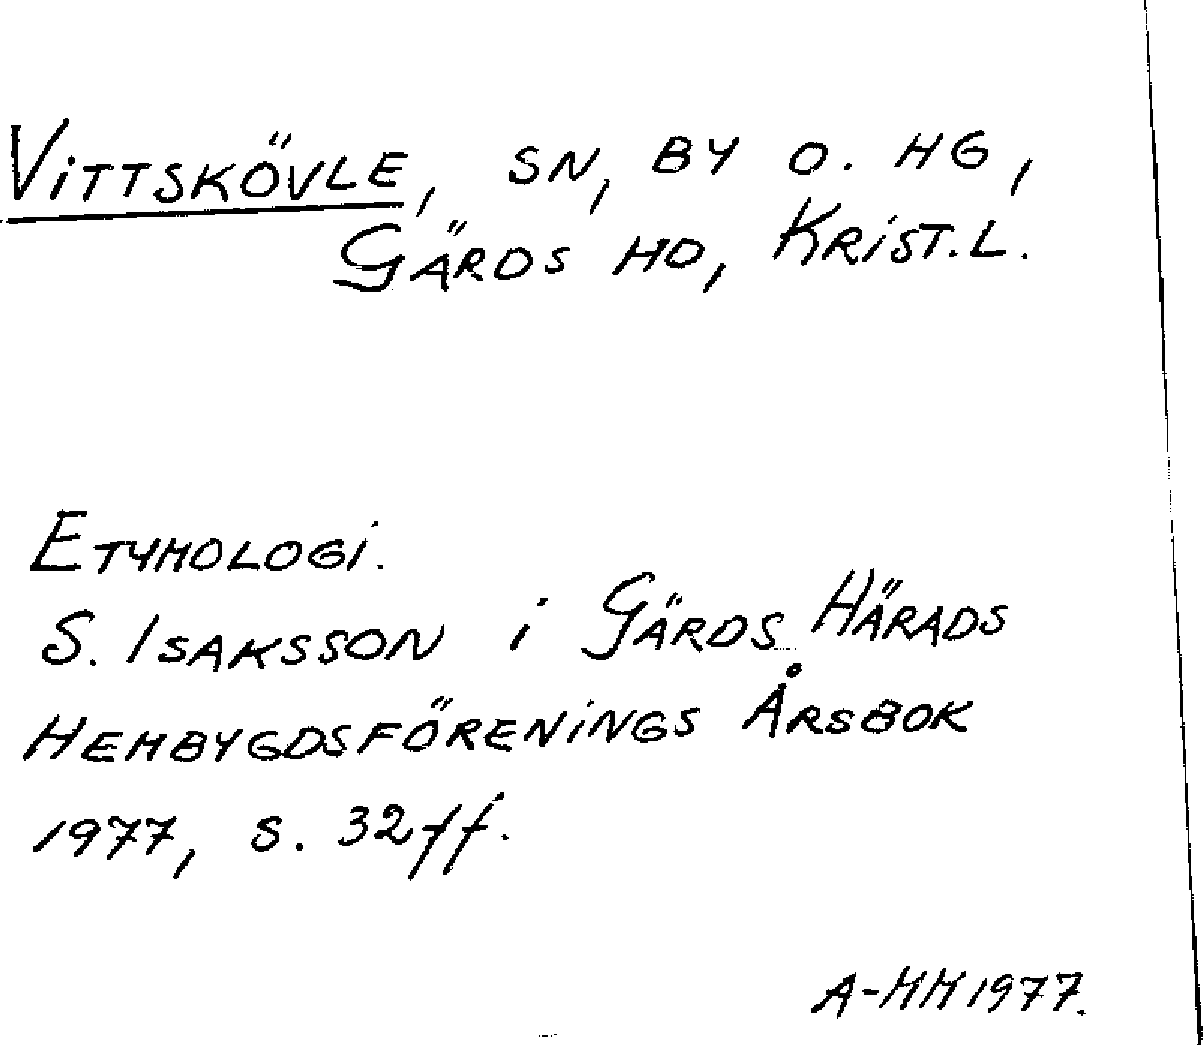 Vittskövle, sn, by o. hg,
Gärds hd, Krist.l.
Etymologi.
S. Isaksson i Gärds Härads
Hembygdsförenings Årsbok
1977, s. 32ff.
A-MM 1977.